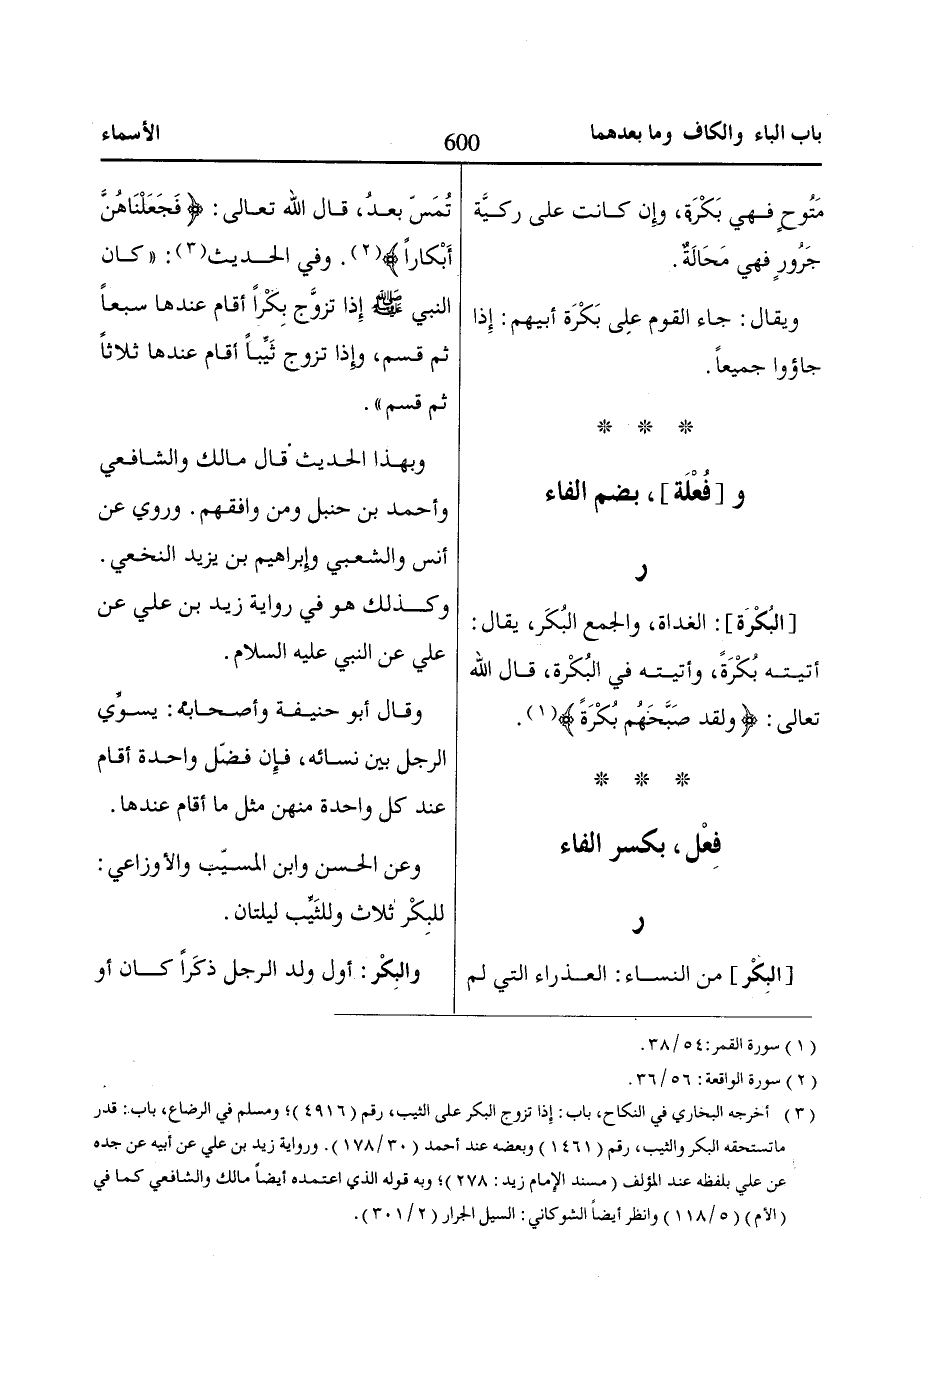 باب الباء والكاف وما بعدهما
600
الأسماء
مَتُوحٍ فهي بَكْرَة، وإن كانت على ركيَّة
جَرُورٍ فهي مَحَالَةٌ.
ويقال: جاء القوم على بَكْرَة أبيهم: إذا
جاؤوا جميعاً.
* * *
و [فُعْلَة]، بضم الفاء
ر
[البُكْرَة]: الغداة، والجمع البُكَر، يقال:
أتيتـه بُكْرَةً، وأتيته في البُكْرة، قال الله
تعالى: ﴿ولقد صَبَّحَهُم بُكْرَةً﴾(١).
* * *
فِعْل، بكسر الفاء
ر
[البِكْر] من النساء: العذراء التي لم
تُمَسّ بعدُ، قال الله تعالى: ﴿فَجَعَلْنَاهُنَّ
أَبْكاراً﴾(٢). وفي الحديث(٣): «كان
النبي ﷺ إذا تزوَّج بِكْراً أقام عندها سبعاً
ثم قسم، وإذا تزوج ثَيِّباً أقام عندها ثلاثاً
ثم قسم».
وبهذا الحديث قال مالك والشافعي
وأحمد بن حنبل ومن وافقهم. وروي عن
أنس والشعبي وإبراهيم بن يزيد النخعي.
وكذلك هو في رواية زيد بن علي عن
علي عن النبي عليه السلام.
وقال أبو حنيفة وأصحابه: يسوِّي
الرجل بين نسائه، فإن فضّل واحدة أقام
عند كل واحدة منهن مثل ما أقام عندها.
وعن الحسن وابن المسيّب والأوزاعي:
للبِكْر ثلاث وللثَيِّب ليلتان.
والبِكْر: أول ولد الرجل ذكَراً كان أو
(١) سورة القمر: ٥٤/٣٨.
(٢) سورة الواقعة: ٥٦/٣٦.
(٣) أخرجه البخاري في النكاح، باب: إذا تزوج البكر على الثيب، رقم (٤٩١٦)؛ ومسلم في الرضاع، باب: قدر
ماتستحقه البكر والثيب، رقم (١٤٦١) وبعضه عند أحمد (٣٠/١٧٨). ورواية زيد بن علي عن أبيه عن جده
عن علي بلفظه عند المؤلف (مسند الإمام زيد: ٢٧٨)؛ وبه قوله الذي اعتمده أيضاً مالك والشافعي كما في
(الأم) (٥/١١٨) وانظر أيضاً الشوكاني: السيل الجرار (٢/٣٠١).